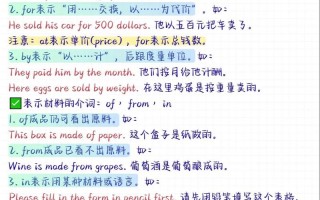 2. for表示“用……交换，以……为代价”。如：
He sold his car for 500 dollars. 他以五百元把车卖了。
注意：at表示单价(price)，for表示总钱数。
3. by表示“以……计”，后跟度量单位。如：
They paid him by the month. 他们按月给他计酬。
Here eggs are sold by weight. 在这里鸡蛋是按重量卖的。
✅表示材料的介词：of，from，in
1. of成品仍可看出原料。如：
This box is made of paper. 这个盒子是纸做的。
2. from成品已看不出原料。如：
Wine is made from grapes. 葡萄酒是葡萄酿成的。
3. in表示用某种材料或语言。如：
Please fill in the form in pencil first. 请先用铅笔填写这个表格。